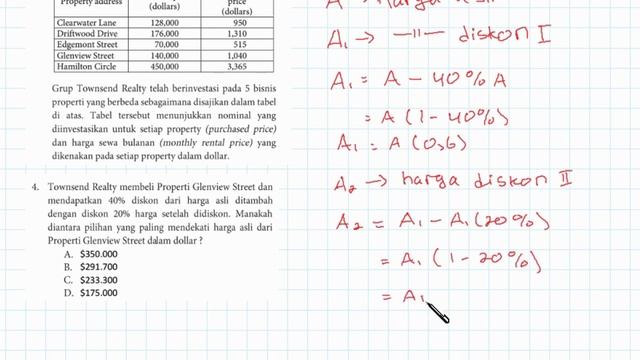 Property address
(dollars)
price
(dollars)
Clearwater Lane 128,000 950
Driftwood Drive 176,000 1,310
Edgemont Street 70,000 515
Glenview Street 140,000 1,040
Hamilton Circle 450,000 3,365
Grup Townsend Realty telah berinvestasi pada 5 bisnis
properti yang berbeda sebagaimana disajikan dalam tabel
di atas. Tabel tersebut menunjukkan nominal yang
diinvestasikan untuk setiap property (purchased price)
dan harga sewa bulanan (monthly rental price) yang
dikenakan pada setiap property dalam dollar.
4. Townsend Realty membeli Properti Glenview Street dan
mendapatkan 40% diskon dari harga asli ditambah
dengan diskon 20% harga setelah didiskon. Manakah
diantara pilihan yang paling mendekati harga asli dari
Properti Glenview Street dalam dollar ?
A. $350.000
B. $291.700
C. $233.300
D. $175.000
A₁ → —"— diskon I
A₁ = A - 40% A
= A (1 - 40%)
A₁ = A (0,6)
A₂ → harga diskon II
A₂ = A₁ - A₁ (20%)
= A₁ (1 - 20%)
= A₁